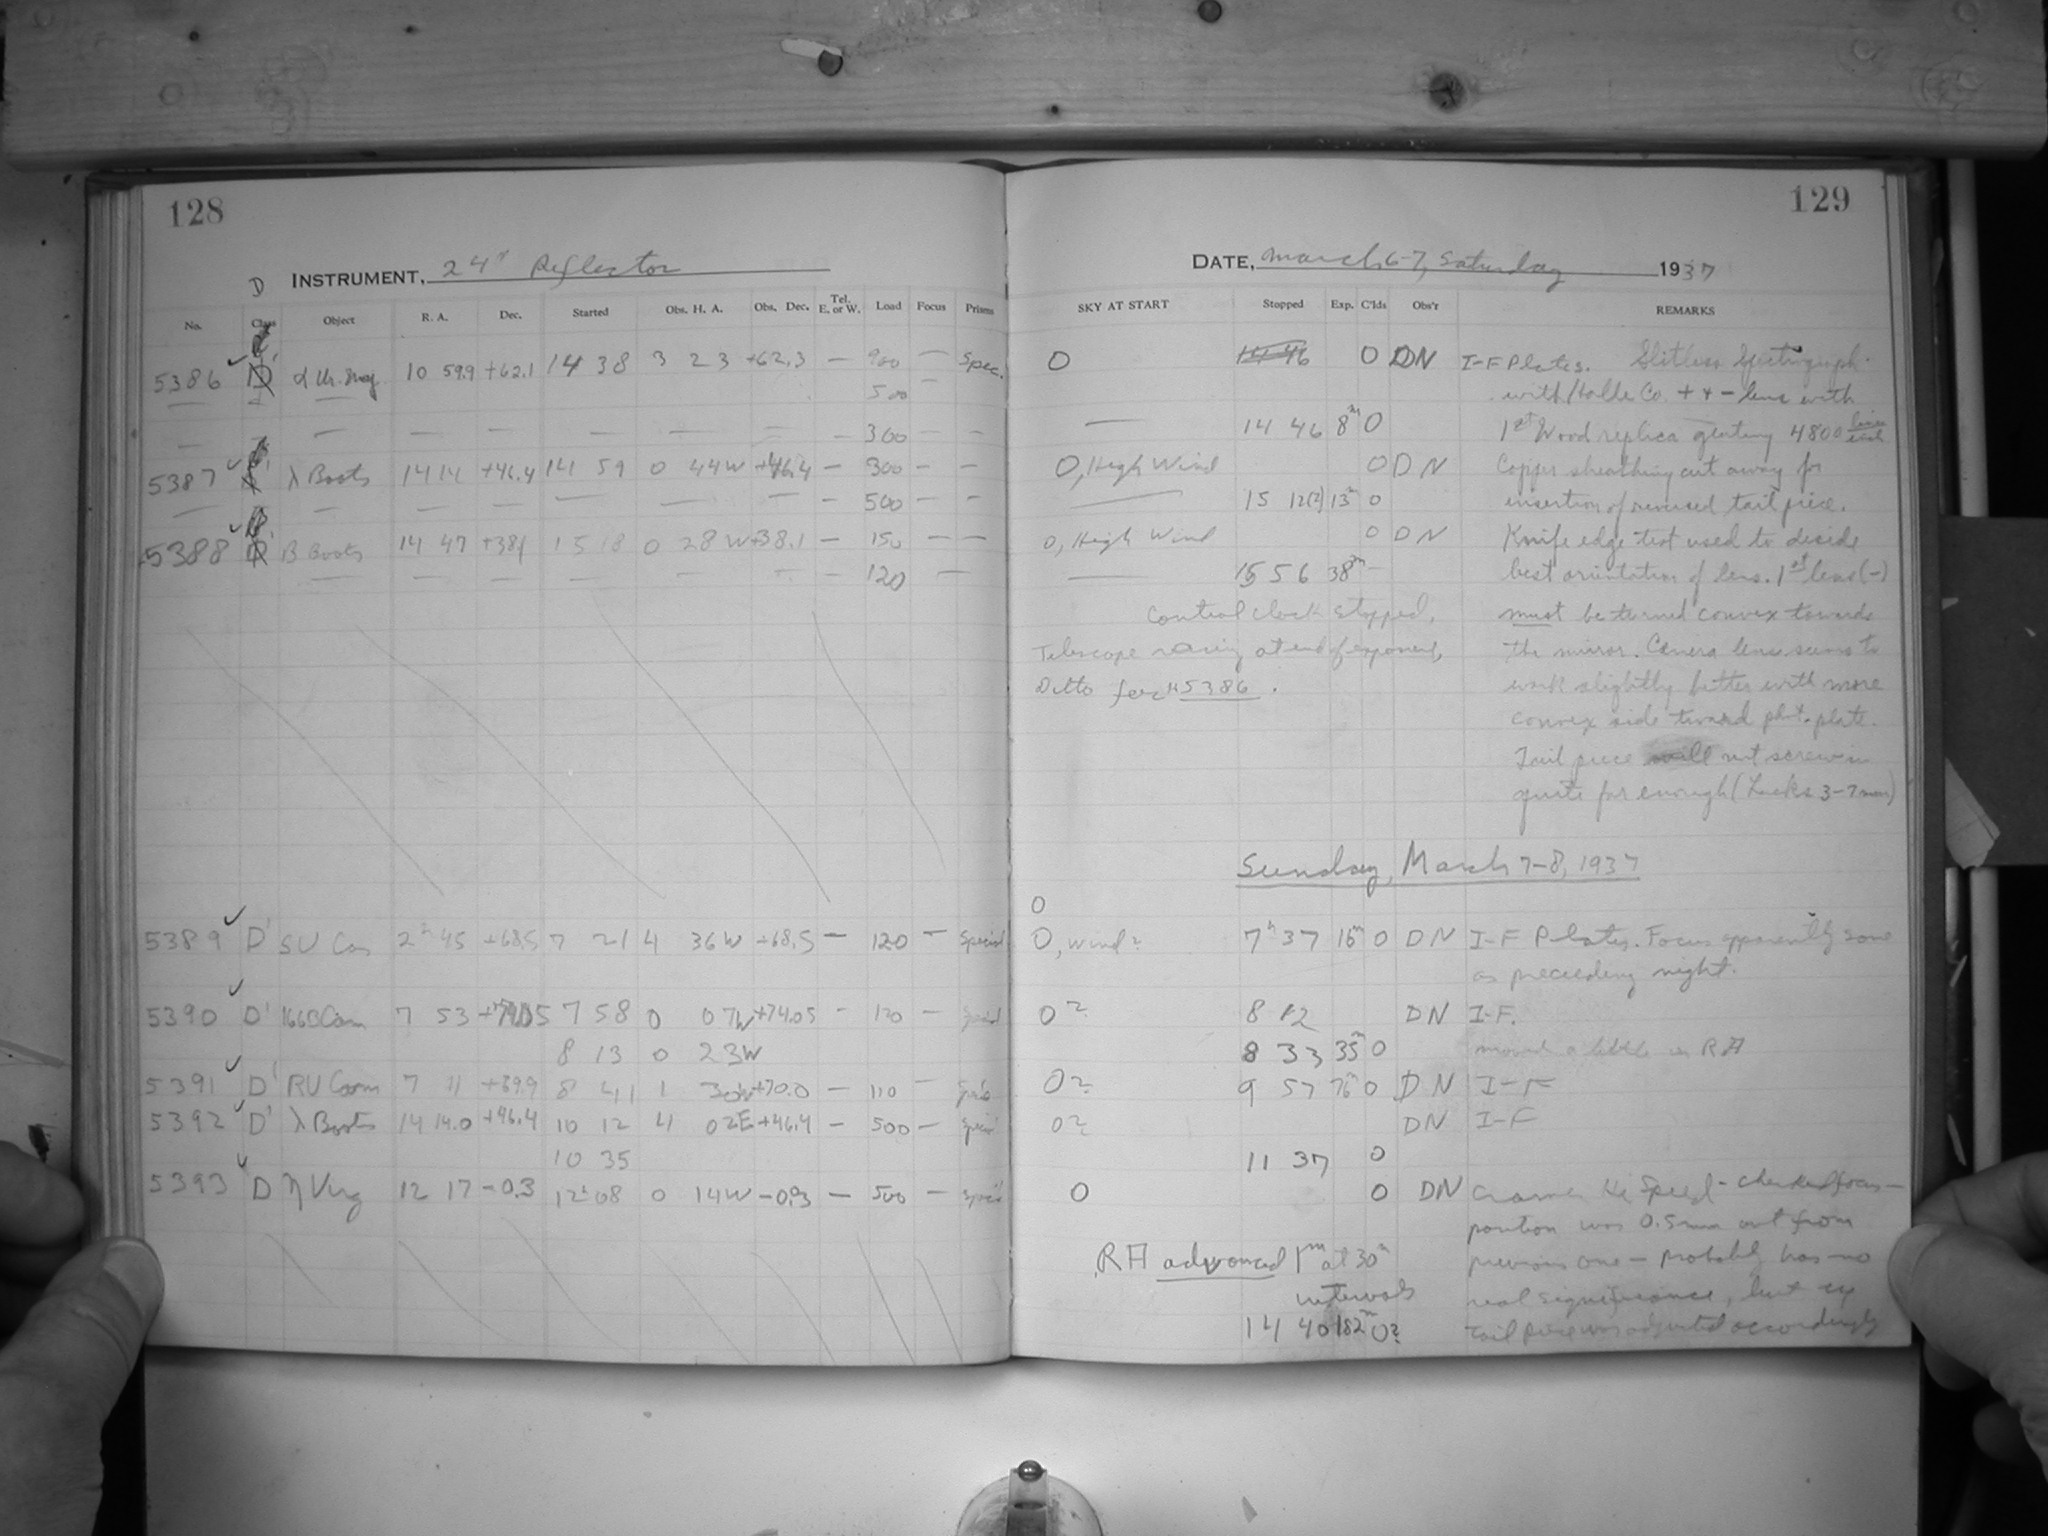 128
INSTRUMENT, 24" Reflector
D
No. Class Object R. A. Dec. Started Obs. H. A. Obs. Dec. Tel. E. or W. Load Focus Prisms
5386 D' α Ur. Maj 10 59.9 +62.1 14 38 3 23 +62.3 — 900 — Spec.
500 —
— — — — — — — — — 300 — —
5387 λ Boots 14 14 +46.4 14 59 0 44W +46.4 — 300 — —
— — — — — — — 500 — —
5388 B Boots 14 47 +38.1 15 18 0 28W +38.1 — 150 — —
— — — — — — — 120 —
5389 D' SU Cas 2h 45 +68.5 7 21 4 36W +68.5 — 120 — Special
5390 D' 166B Cam 7 53 7 58 0 07W +74.05 — 120 —
8 13 0 23W
5391 D' RU Cam 7 11 +69.9 8 41 1 30W +70.0 — 110 —
5392 D' λ Boots 14 14.0 +46.4 10 12 4 02E +46.4 — 500 —
10 35
5393 D η Virg 12 17 -0.3 12h 08 0 14W -0.3 — 500 —
129
DATE, March 6-7, Saturday 1937
SKY AT START Stopped Exp. C'lds Obs'r REMARKS
0 14 46 0 DN I-F Plates. Slitless Spectrograph
with Halle Co. + & - lens with
— 14 46 8m 0 1st Wood replica grating 4800 lines inch
0, High Wind 0 DN Copper sheathing cut away for
— 15 12(?) 13m 0 insertion of revised tail piece.
0, High Wind 0 DN Knife edge test used to decide
— 15 56 38m — best orientation of lens. 1st lens (-)
Control clock stopped, must be turned convex towards
Telescope racing at end of exposure, the mirror. Camera lens seems to
Ditto for #5386. work slightly better with more
convex side toward phot. plate.
Tail piece will not screw in
quite far enough (Lacks 3-7 mm)
Sunday, March 7-8, 1937
0
0, wind? 7h 37 16m 0 DN I-F Plates. Focus apparently same
as preceeding night.
0? 8 12 DN I-F.
8 33 35m 0 moved a little in RA
0? 9 57 76m 0 DN I-F
0? DN I-F
11 37 0
0 0 DN Cramer Hi Speed - checked focus —
position was 0.5mm out from
RA advanced 1m at 30m previous one — probably has no
intervals real significance, but
14 40 182m 0? tail piece was adjusted accordingly